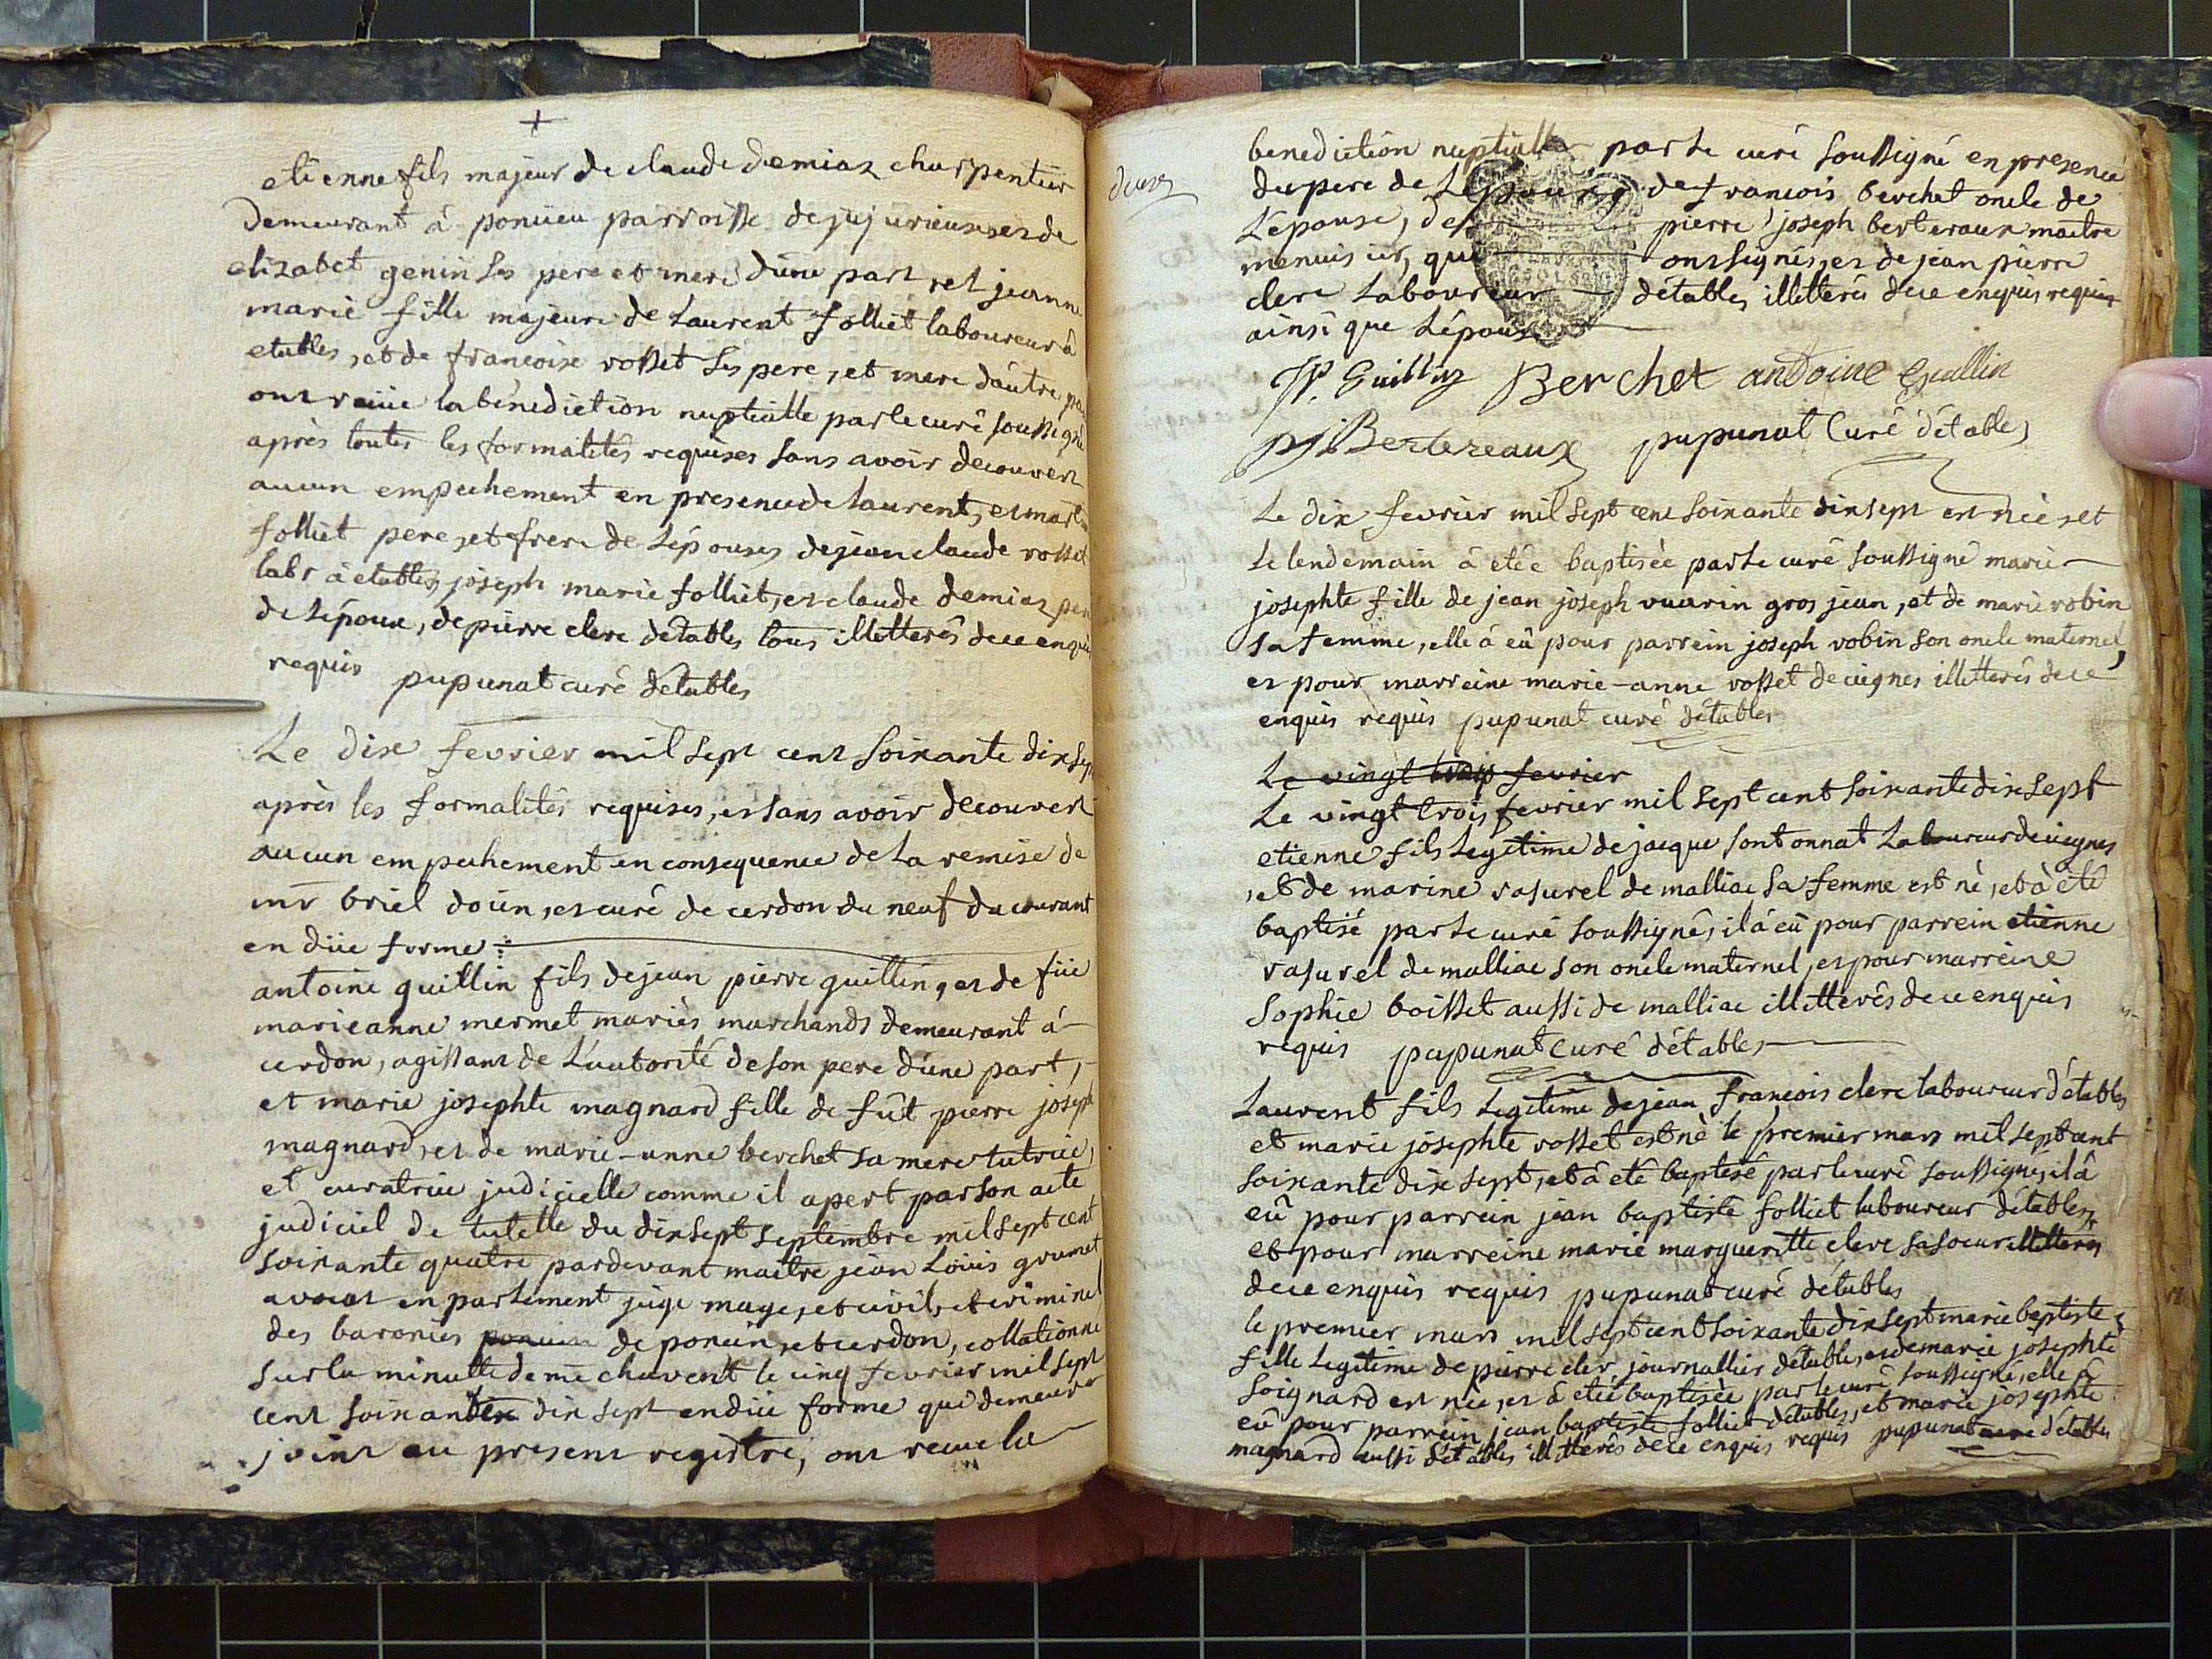 +
etienne fils majeur de claude demiaz charpentier
demeurant á poncieu parroisse de jujurieux, er de
elizabet genin ses pere et mere d'une part, et jeanne
marie fille majeure de Laurent folliet laboureur á
etables, et de francoise rosset ses pere, et mere d'autre pa
onr recüe la bénédiction nuptialle par le curé soussigné
après toutes les formalités requises sans avoir decouvert
aucun empechement en presence de laurent, er martin
folliet pere, et frere de Lépouse, de jean claude rosset
labr á etables, joseph marie folliet, er claude demiaz pere
de Lépoux, de pierre clerc détables tous illetterés de ce enquis
requis pupunat curé détables
Le dix fevrier mil sept cent soixante dix sept
après les formalités requises, er sans avoir decouvert
aucun empechement en consequence de La remise de
mr briel doïen, er curé de cerdon du neuf du courant
en düe forme
antoine guillin fils de jean pierre guillin, er de füe
marieanne mermet mariés marchands demeurant á
cerdon, agissanr de L'autorité de son pere d'une part,
er marie josephte magnard fille de fût pierre joseph
magnard, er de marie-anne berchet sa mere tutrice,
et curatrice judicielle comme il apert par son acte
judiciel de tutelle du dixsept septembre mil sept cent
soixante quatre pardevant maître jean Loüis grumet
avocat en parlement juge mage, et civil, et criminel
des baronies poncin de poncin, et cerdon, collationné
sur la minutte de me chavent le cinq fevrier mil sept
cenr soixante dix sept en düe forme qui demeure
joinr au presenr registre, onr recüe la
deux
benediction nuptialle par le curé soussigné en presence
du pere de Lépoux, de francois berchet oncle de
Lépouse, de pierre joseph berteraux maitre
menuisier, qui onr signés, er de jean pierre
clerc Laboureur détables illetterés de ce enquis requis
ainsi que Lépouse
JP. Guillin Berchet antoine Guillin
pj Bertereaux pupunat Curé d'étables
Le dix fevrier mil sept cenr soixante dix sept er née, et
le lendemain á etée baptisée par le curé soussigné marie
josephte fille de jean joseph vuarin gros jean, et de marie robin
sa femme, elle á eû pour parrein joseph robin son oncle maternel,
er pour marreine marie-anne rosset de ceignes illetterés de ce
enquis requis pupunat curé détables
Le vingt trois fevrier
Le vingt trois fevrier mil sept cent soixante dix sept
etienne fils Legitime de jacque fontonnat Laboureur de ceignes
, et de marine rasurel de malliac sa femme est né, et à été
baptisé par le curé soussigné, il á eû pour parrein etienne
rasurel de malliac son oncle maternel, er pour marreine
sophie boisset aussi de malliac illetterés de ce enquis
requis pupunat curé détables
Laurent fils Legitime de jean francois clerc laboureur détables
et marie josephte rosset est né le premier mars mil sept cent
soixante dix sept, et à eté baptisé par le curé soussigné, il á
eû pour parrein jean baptiste folliet laboureur détables,
et pour marreine marie margueritte clerc sa soeur illetterés
de ce enquis requis pupunat curé détables
le premier mars mil sept cent soixante dix sept marie baptiste
fille Legitime de pierre clerc journallier détables, er de marie josephte
soignard er née, er á etée baptisée par le curé soussigné, elle á
eû pour parrein jean baptiste folliet détables, et marie josephte
magnard aussi détables illetterés de ce enquis requis pupunat curé détables